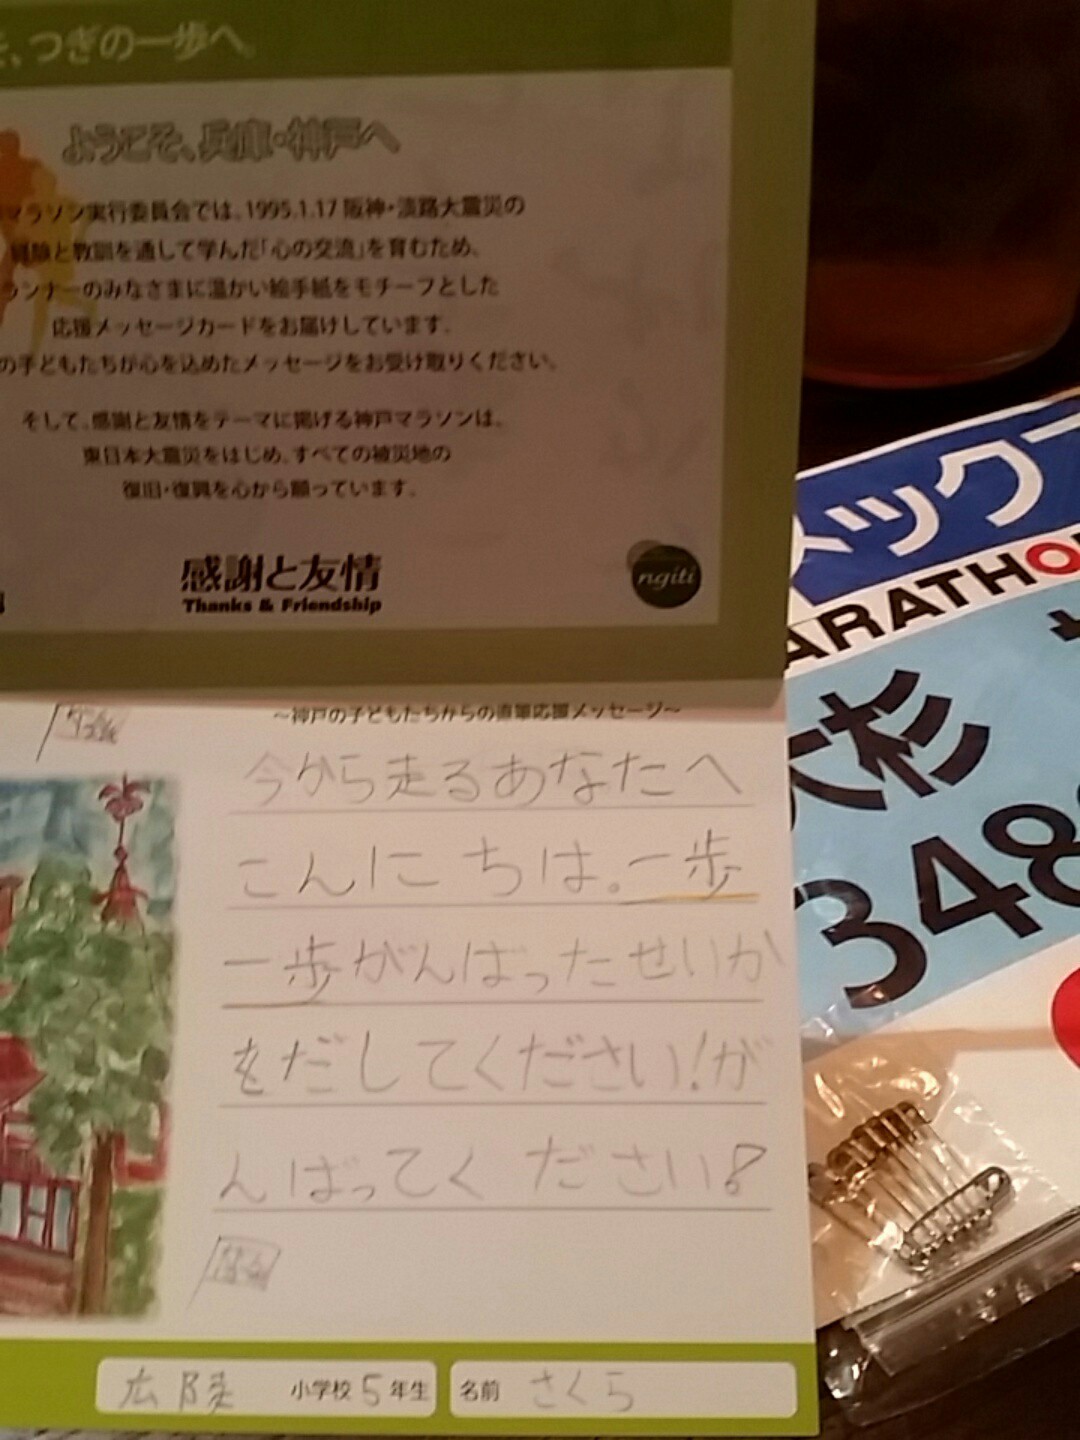 、つぎの一歩へ。
ようこそ、兵庫・神戸へ
マラソン実行委員会では、1995.1.17 阪神・淡路大震災の
経験と教訓を通して学んだ「心の交流」を育むため、
ランナーのみなさまに温かい絵手紙をモチーフとした
応援メッセージカードをお届けしています。
の子どもたちが心を込めたメッセージをお受け取りください。
そして、感謝と友情をテーマに掲げる神戸マラソンは、
東日本大震災をはじめ、すべての被災地の
復旧・復興を心から願っています。
感謝と友情
Thanks & Friendship
ngiti
~神戸の子どもたちからの直筆応援メッセージ~
今から走るあなたへ
こんにちは。一歩
一歩がんばったせいか
をだしてください!が
んばってください!
広陵 小学校 5 年生 名前 さくら
メック
ARATHO
大杉
348